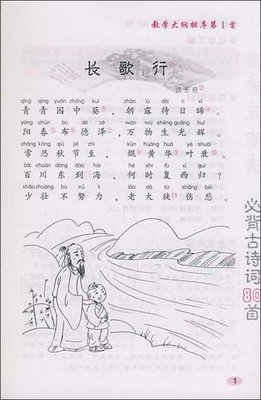 教学大纲排序第1首
长歌行
汉乐府①
qīng qīng yuán zhōng kuí zhāo lù dài rì xī
青青园中葵②，朝露待日晞③。
yáng chūn bù dé zé wàn wù shēng guāng huī
阳春④布⑤德泽⑥，万物生光辉。
cháng kǒng qiū jié zhì kūn huáng huā yè shuāi
常恐秋节至，焜黄华叶衰。
bǎi chuān dōng dào hǎi hé shí fù xī guī
百川东到海，何时复西归？
shào zhuàng bù nǔ lì lǎo dà tú shāng bēi
少壮不努力，老大徒伤悲。
必背古诗词80首
1